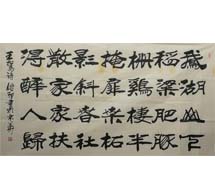 鵝湖山下
稻粱肥豚
柵雞棲半
掩扉桑柘
影斜春社
散家家扶
得醉人歸
王駕詩